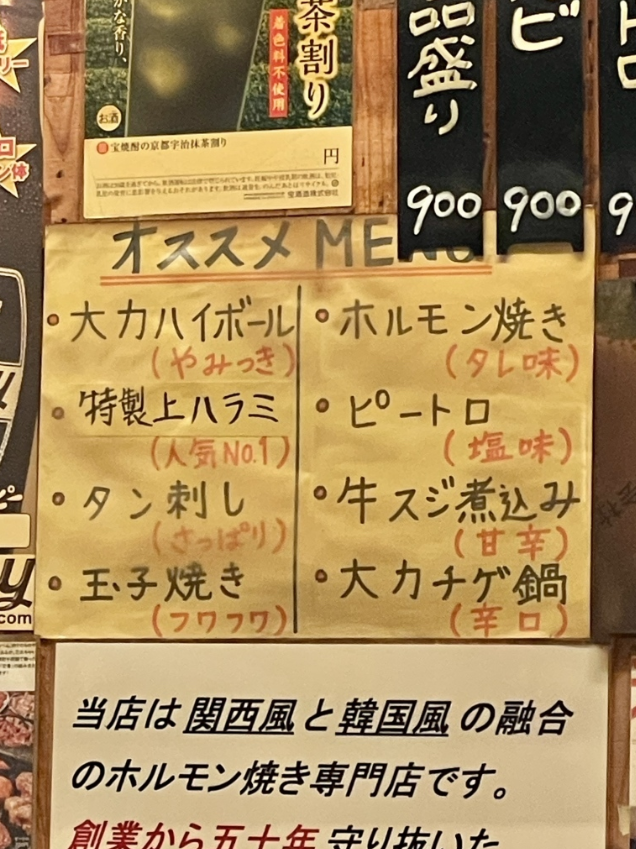 茶割り
かな香り、
着色料不使用
お酒
宝焼酎の京都宇治抹茶割り
円
宝酒造株式会社
品盛り
900
ビ
900
トロ
9
オススメ MENU
• 大力ハイボール
(やみつき)
• 特製上ハラミ
(人気No.1)
• タン刺し
(さっぱり)
• 玉子焼き
(フワフワ)
• ホルモン焼き
(タレ味)
• ピートロ
(塩味)
• 牛スジ煮込み
(甘辛)
• 大力チゲ鍋
(辛口)
当店は関西風と韓国風の融合
のホルモン焼き専門店です。
創業から五十年守り抜いた
.com